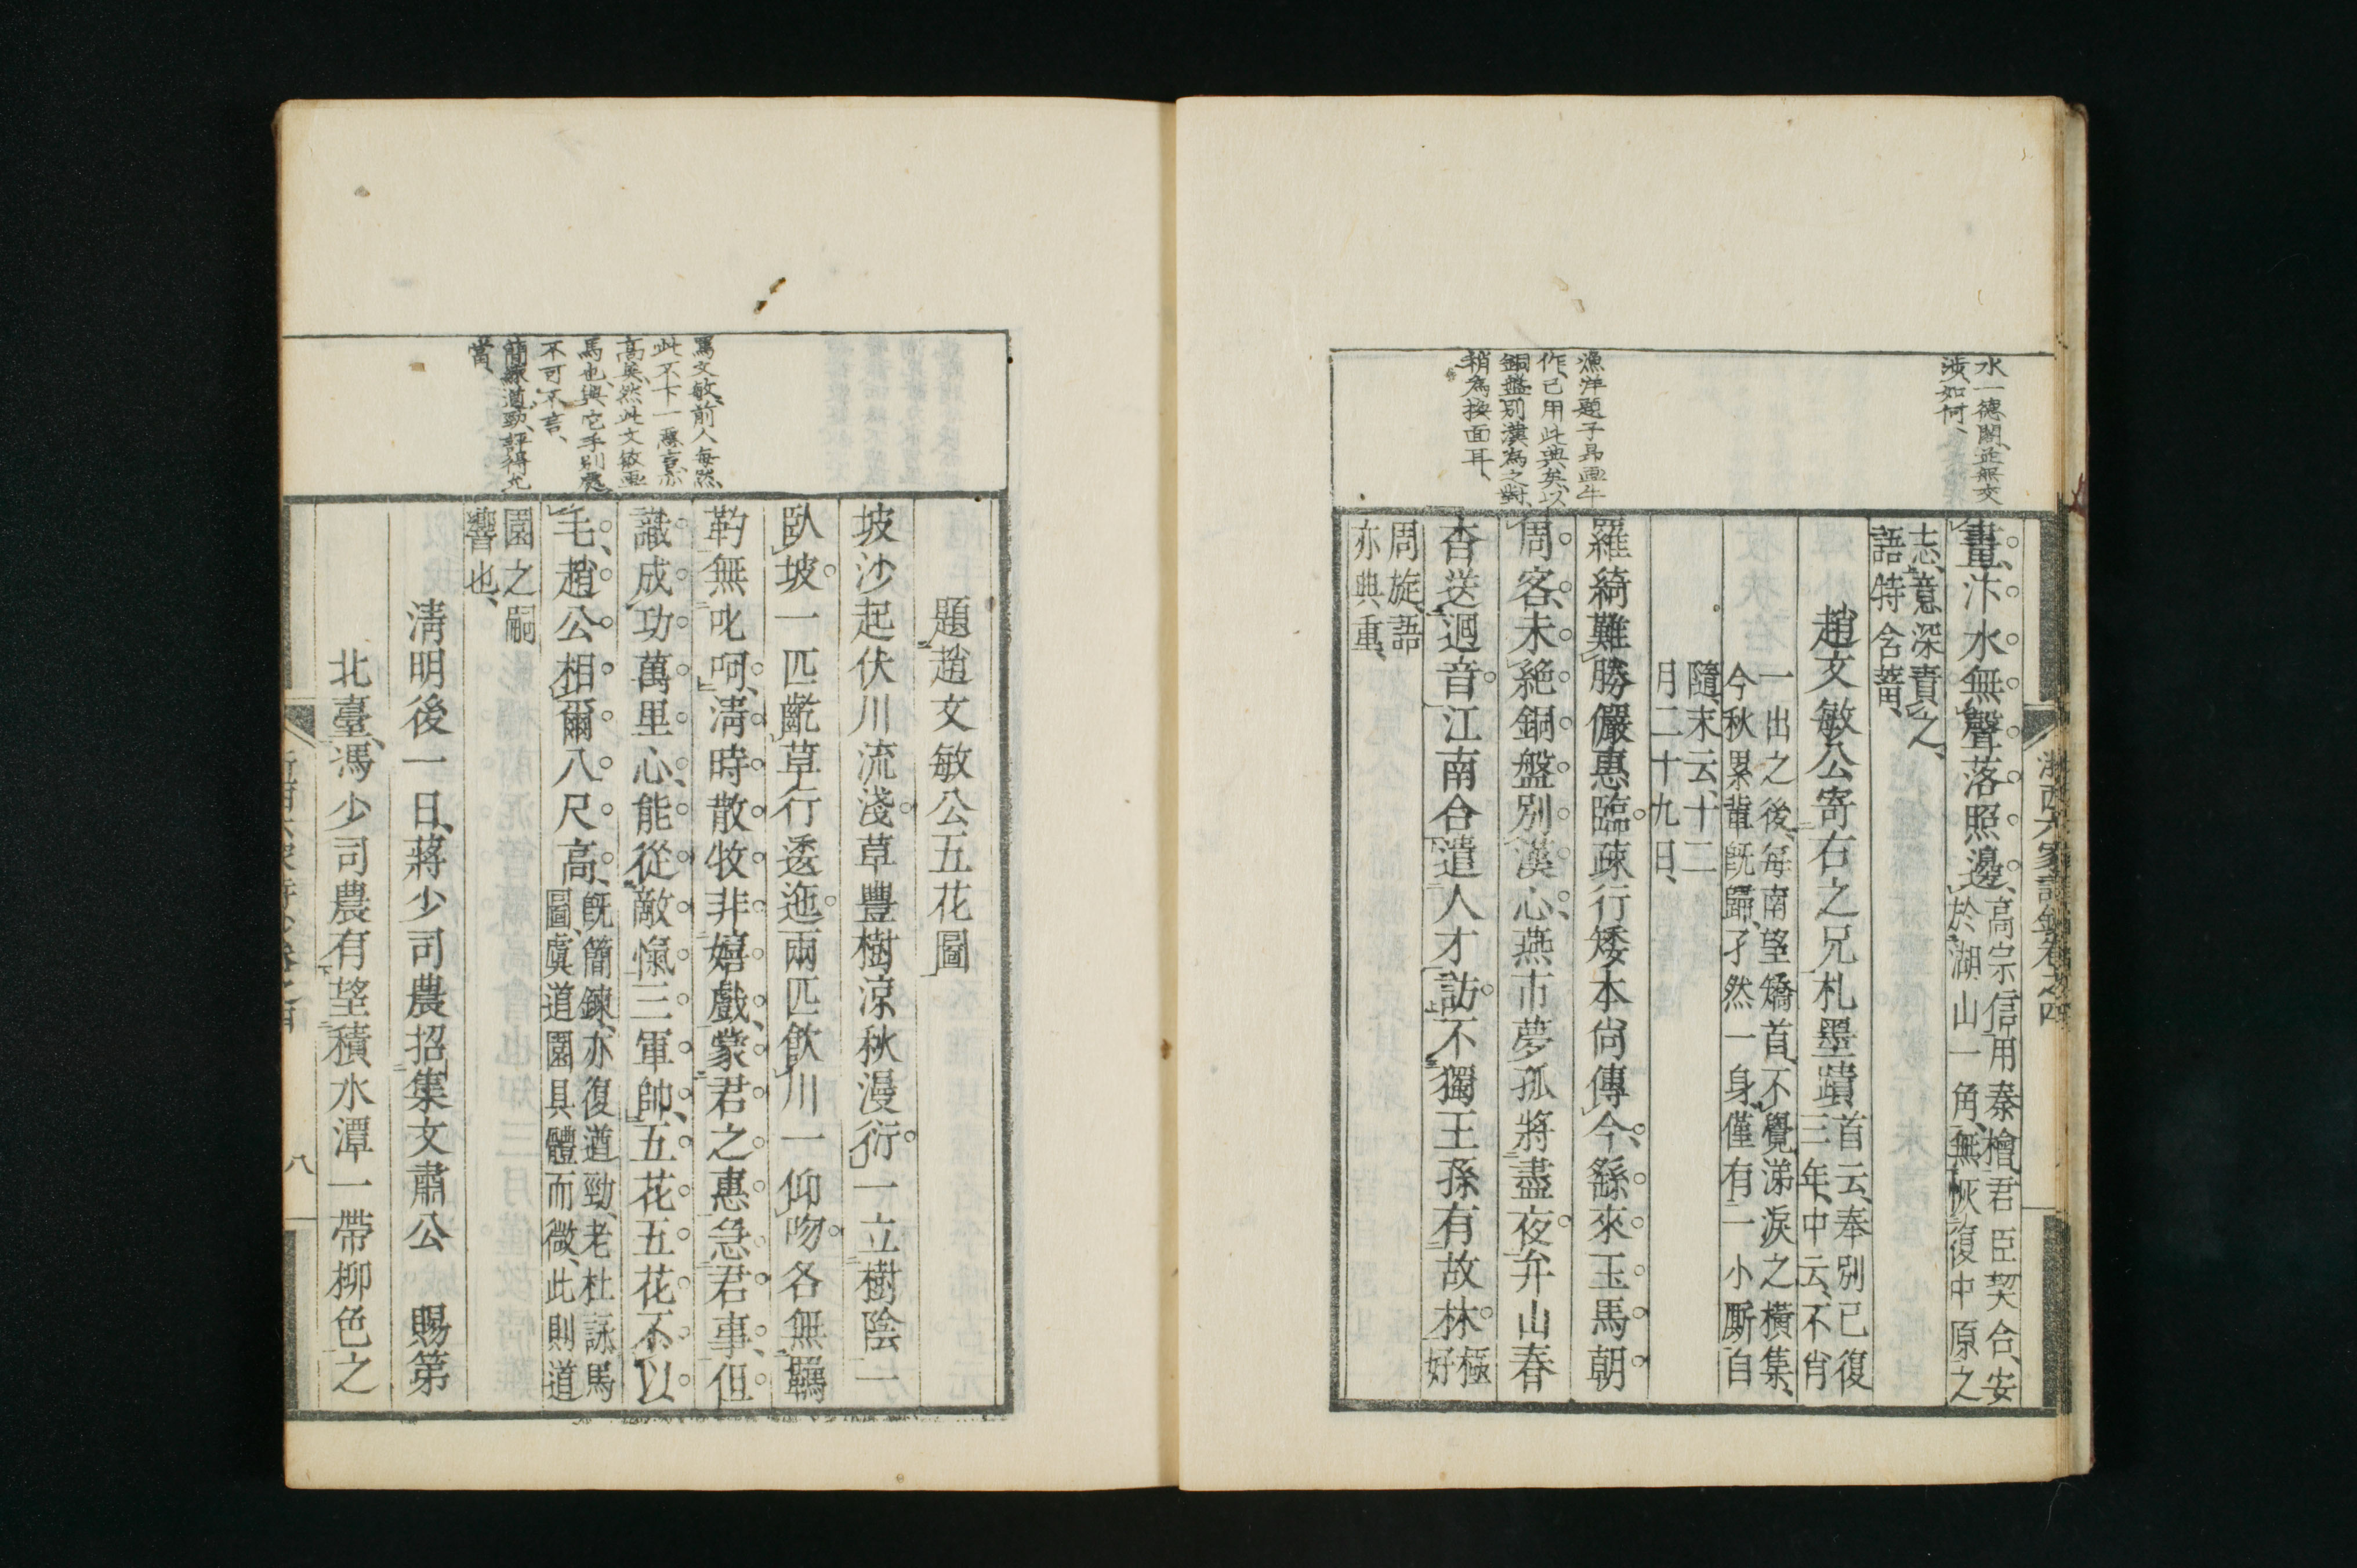 水一德閣、並無交
涉、如何、
畫、汴水無聲落照邊、高宗信用秦檜、君臣契合、安
於湖山一角、無恢復中原之
志、意深責之、
語特含蓄、
趙文敏公寄右之兄札墨蹟、首云、奉別已復
三年、中云、不肖
一出之後、每南望矯首、不覺涕淚之橫集、
今秋累輩既歸、孑然一身、僅有一小廝自
隨、末云、十二
月二十九日、
漁洋題子昂畫牛
作、已用此典矣、以
銅盤別漢為之對、
稍為換面耳、
羅綺難勝儼惠臨疎行矮本尙傳今、繇來玉馬朝
周客、未絕銅盤別漢心、燕市夢孤將盡夜弁山春
杳送迥音江南合遣人才訪不獨王孫有故林極
好
周旋、語
亦典重、
浙西六家詩鈔卷之四
題趙文敏公五花圖
坡沙起伏川流淺草豐樹涼秋漫衍一立樹陰一
臥坡一匹齕草行逶迤兩匹飲川一仰吻各無羈
靮無叱呵、淸時散牧非嬉戲、蒙君之惠急君事、但
識成功萬里心、能從敵愾三軍帥、五花五花不以
毛、趙公相爾八尺高、既簡鍊、亦復遒勁、老杜詠馬
圖、虞道園具體而微、此則道
園之嗣
響也、
罵文敏、前人每然、
此不下一惡言、亦
高矣、然此文敏画
馬也、與它手別處、
不可不言、
簡鍊遒勁、評得尤
當、
淸明後一日、蔣少司農招集文肅公　賜第
北臺、馮少司農有望積水潭一帶柳色之
八